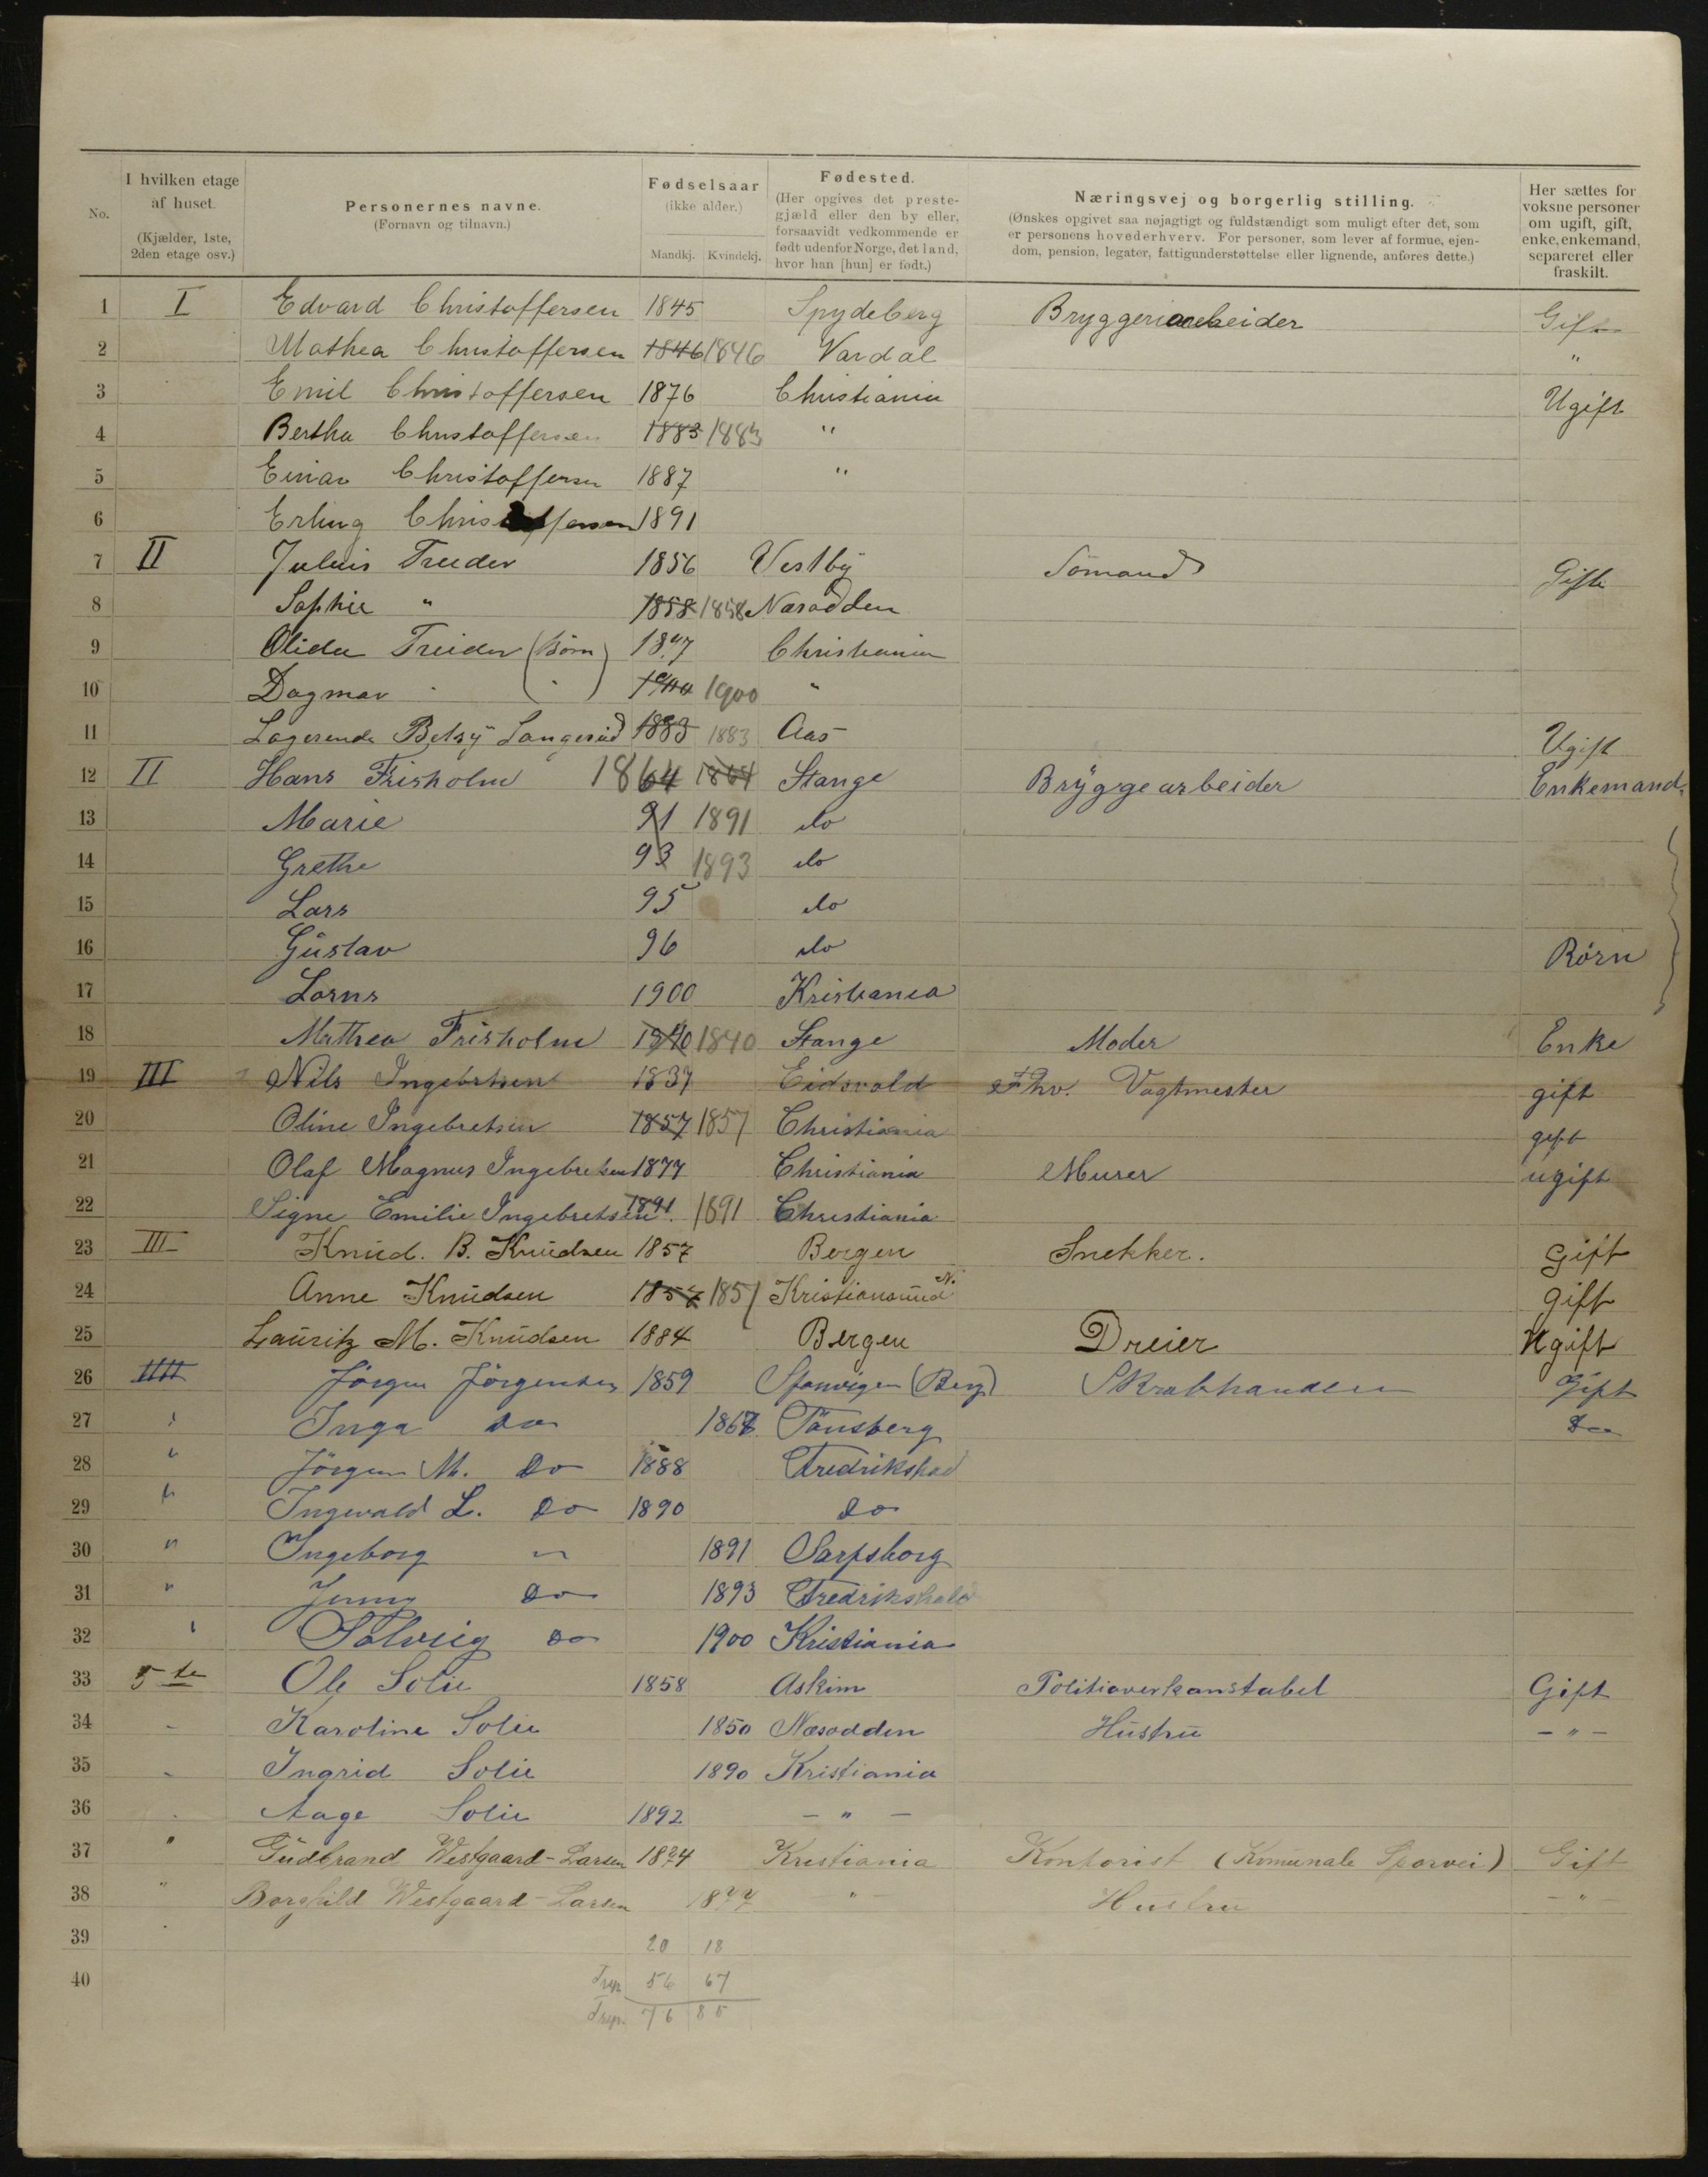 No.
I hvilken etage af huset. (Kjælder, 1ste, 2den etage osv.)
Personernes navne. (Fornavn og tilnavn.)
Fødselsaar (ikke alder.) Mandkj. Kvindekj.
Fødested. (Her opgives det prestegjæld eller den by eller, forsaavidt vedkommende er født udenfor Norge, det land, hvor han [hun] er født.)
Næringsvej og borgerlig stilling. (Ønskes opgivet saa nøjagtigt og fuldstændigt som muligt efter det, som er personens hovederhverv. For personer, som lever af formue, ejendom, pension, legater, fattigunderstøttelse eller lignende, anføres dette.)
Her sættes for voksne personer om ugift, gift, enke, enkemand, separeret eller fraskilt.
1 I Edvard Christoffersen 1845 Spydeberg Bryggeriarbeider Gift
2 Mathea Christoffersen 1846 1846 Vardal "
3 Emil Christoffersen 1876 Christiania Ugift
4 Bertha Christoffersen 1883 1883 "
5 Einar Christoffersen 1887 "
6 Erling Christoffersen 1891
7 II Julius Treider 1856 Vestby Sömand Gift
8 Sophie " 1858 1858 Næsodden
9 Olida Treider (Börn) 1897 Christiania
10 Dagmar " ( " ) 1900 1900 "
11 Logerende Betsy Langerud 1883 1883 Aas Ugift
12 II Hans Frisholm 1864 64 1864 Stange Bryggearbeider Enkemand
13 Marie 91 1891 do
14 Grethe 93 1893 do
15 Lars 95 do
16 Gustav 96 do Börn
17 Lorns 1900 Kristiania
18 Mathea Frisholm 1840 1840 Stange Moder Enke
19 III Nils Ingebretsen 1837 Eidsvold Fhv. Vagtmester gift
20 Oline Ingebretsen 1857 1857 Christiania gift
21 Olaf Magnus Ingebretsen 1877 Christiania Murer ugift
22 Signe Emilie Ingebretsen 1891 1891 Christiania
23 III Knud. B. Knudsen 1857 Bergen Snekker. Gift
24 Anne Knudsen 1857 1857 Kristiansund N. gift
25 Lauritz M. Knudsen 1884 Bergen Dreier Ugift
26 IIII Jörgen Jörgensen 1859 Sponvigen (Berg) Skrabhandler Gift
27 " Inga Do 1867 Tönsberg Do
28 " Jörgen M. Do 1888 Fredrikstad
29 " Ingevald L. Do 1890 Do
30 " Ingeborg " 1891 Sarpsborg
31 " Jenny Do 1893 Fredrikshald
32 " Solveig Do 1900 Kristiania
33 5te Ole Solie 1858 Askim Politioverkonstabel Gift
34 " Karoline Solie 1850 Næsodden Hustru - " -
35 " Ingrid Solie 1890 Kristiania
36 " Aage Solie 1892 - " -
37 " Gudbrand Westgaard-Larsen 1874 Kristiania Kontorist (Komunale Sporvei) Gift
38 " Borghild Westgaard-Larsen 1877 - " - Hustru - " -
39 20 18
40 56 67
76 85